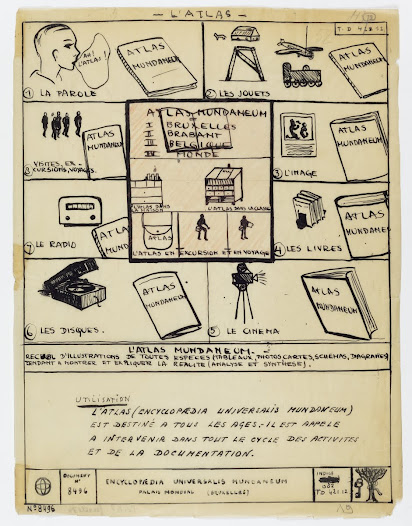 — L'ATLAS —
T.D 428 12
AH!
L'ATLAS!
ATLAS
MUNDANEUM
1 LA PAROLE
2 LES JOUETS
ATLAS
MUNDANEUM
ATLAS
MUNDANEUM
8 VISITES, EX-
CURSIONS, VOYAGES.
ATLAS MUNDANEUM
I BRUXELLES
II BRABANT
III BELGIQUE
IV MONDE
ATLAS
MUNDANEUM
3 L'IMAGE
L'ATLAS DANS
LA MAISON
L'ATLAS DANS LA CLASSE
7 LE RADIO
ATLAS
MUNDAN
ATLAS
L'ATLAS EN EXCURSION ET EN VOYAGE
4 LES LIVRES
ATLAS
MUNDANEUM
6 LES DISQUES.
ATLAS
MUNDANEUM
5 LE CINEMA
ATLAS
MUNDANEUM
L'ATLAS MUNDANEUM.
RECUEIL D'ILLUSTRATIONS DE TOUTES ESPECES (TABLEAUX, PHOTOS, CARTES, SCHEMAS, DIAGRAMES)
TENDANT A MONTRER ET EXPLIQUER LA REALITE (ANALYSE ET SYNTHESE).
UTILISATION
L'ATLAS (ENCYCLOPÆDIA UNIVERSALIS MUNDANEUM)
EST DESTINÉ A TOUS LES AGES: IL EST APPELÉ
A INTERVENIR DANS TOUT LE CYCLE DES ACTIVITES
ET DE LA DOCUMENTATION.
DOCUMENT
N°
8496
ENCYCLOPÆDIA UNIVERSALIS MUNDANEUM
PALAIS MONDIAL (BRUXELLES)
INDICE
N°8496